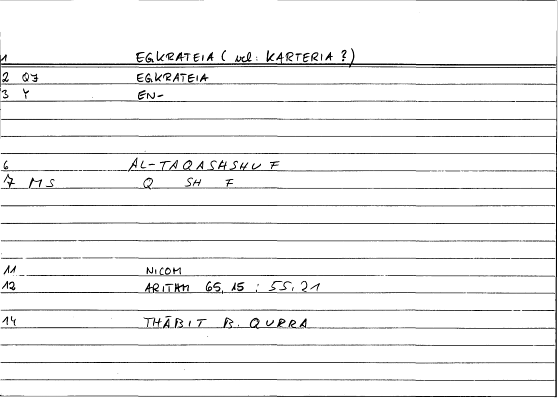 1 EGKRATEIA ( vel: KARTERIA ? )
2 QJ EGKRATEIA
3 Y EN-
6 AL-TAQASHSHUF
7 MS Q SH F
11 NICOM
12 ARITHM 65,15 : 55,21
14 THĀBIT B. QURRA